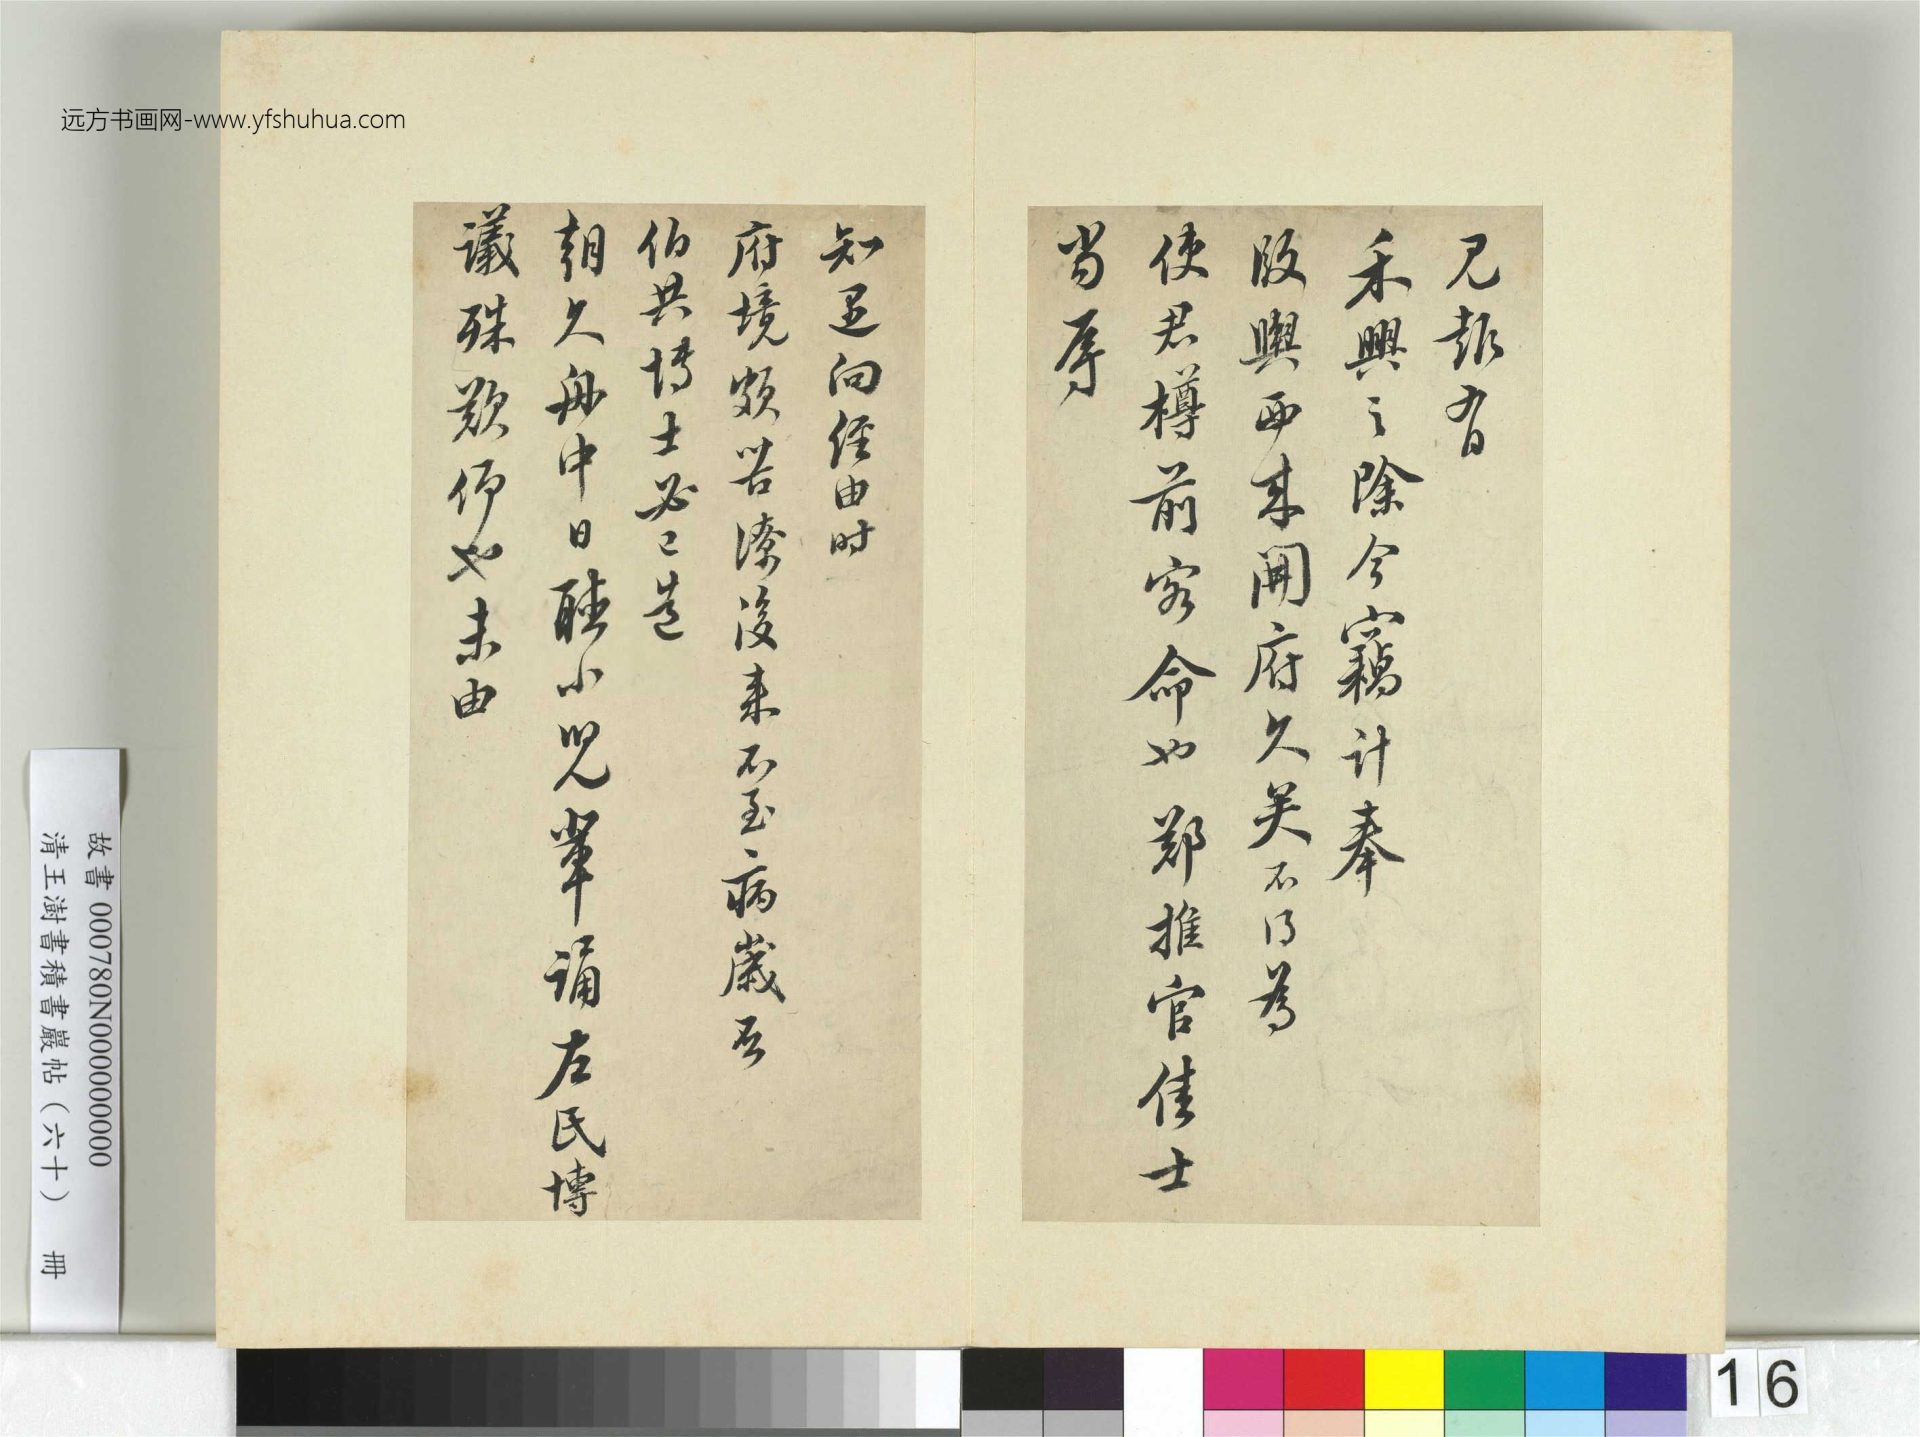 远方书画网-www.yfshuhua.com
见報有
禾興之除今竊計奉
版輿西來開府久矣不得為
使君樽前客命也鄭推官佳士
當辱
知遇向经由时
府境頗苦潦後来不至病歲否
伯共博士必已造
朝久舟中日聽小兒輩誦左氏博
議殊歎仰也未由
故書 000780N000000000
清王澍書積書巖帖（六十） 冊
16